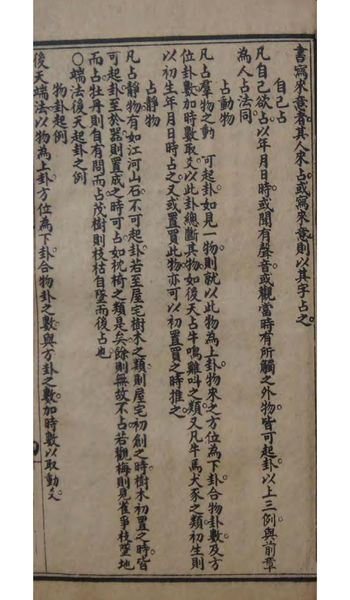 書寫來意者其人來占或寫來意則以其字占之
自己占
凡自己欲占以年月日時或聞有聲音或觀當時有所觸之外物皆可起卦以上三例與前章
為人占法同
占動物
凡占羣物之動 可起卦如見一物則就以此物為上卦物來之方位為下卦合物卦數及方
位卦數加時數取爻以此卦總斷其物如後天占牛鳴雞叫之類又凡牛馬犬豕之類初生則
以初生年月日時占之又或置買此物亦可以初置買之時推之
占靜物
凡占靜物有如江河山石不可起卦若至屋宅樹木之類則屋宅初創之時樹木初置之時皆
可起卦至於器則置成之時可占如枕椅之類是矣餘則無故不占若觀梅則見雀爭枝墜地
而占牡丹則自有問而占茂樹則枝枯自墜而後占也
〇端法後天起卦之例
物卦起例
後天端法以物為上卦方位為下卦合物卦之數與方卦之數加時數以取動爻